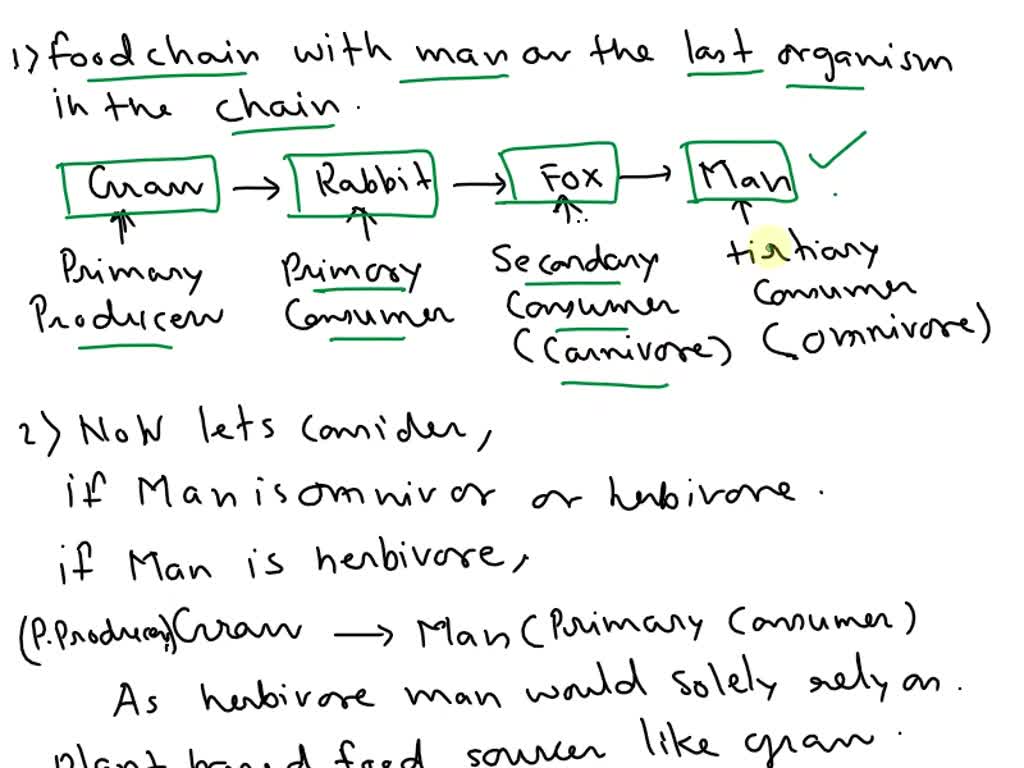 1) Food chain with man as the last organism
in the chain.
Grass → Rabbit → Fox → Man
Primary Producers
Primary Consumer
Secondary Consumer (Carnivore)
tirtiary Consumer (omnivore)
2) Now lets consider,
if Man is omnivor or herbivore.
if Man is herbivore,
(P.Producer) Grass → Man (Primary Consumer)
As herbivore man would solely rely on.
Plant based food sources like grass.